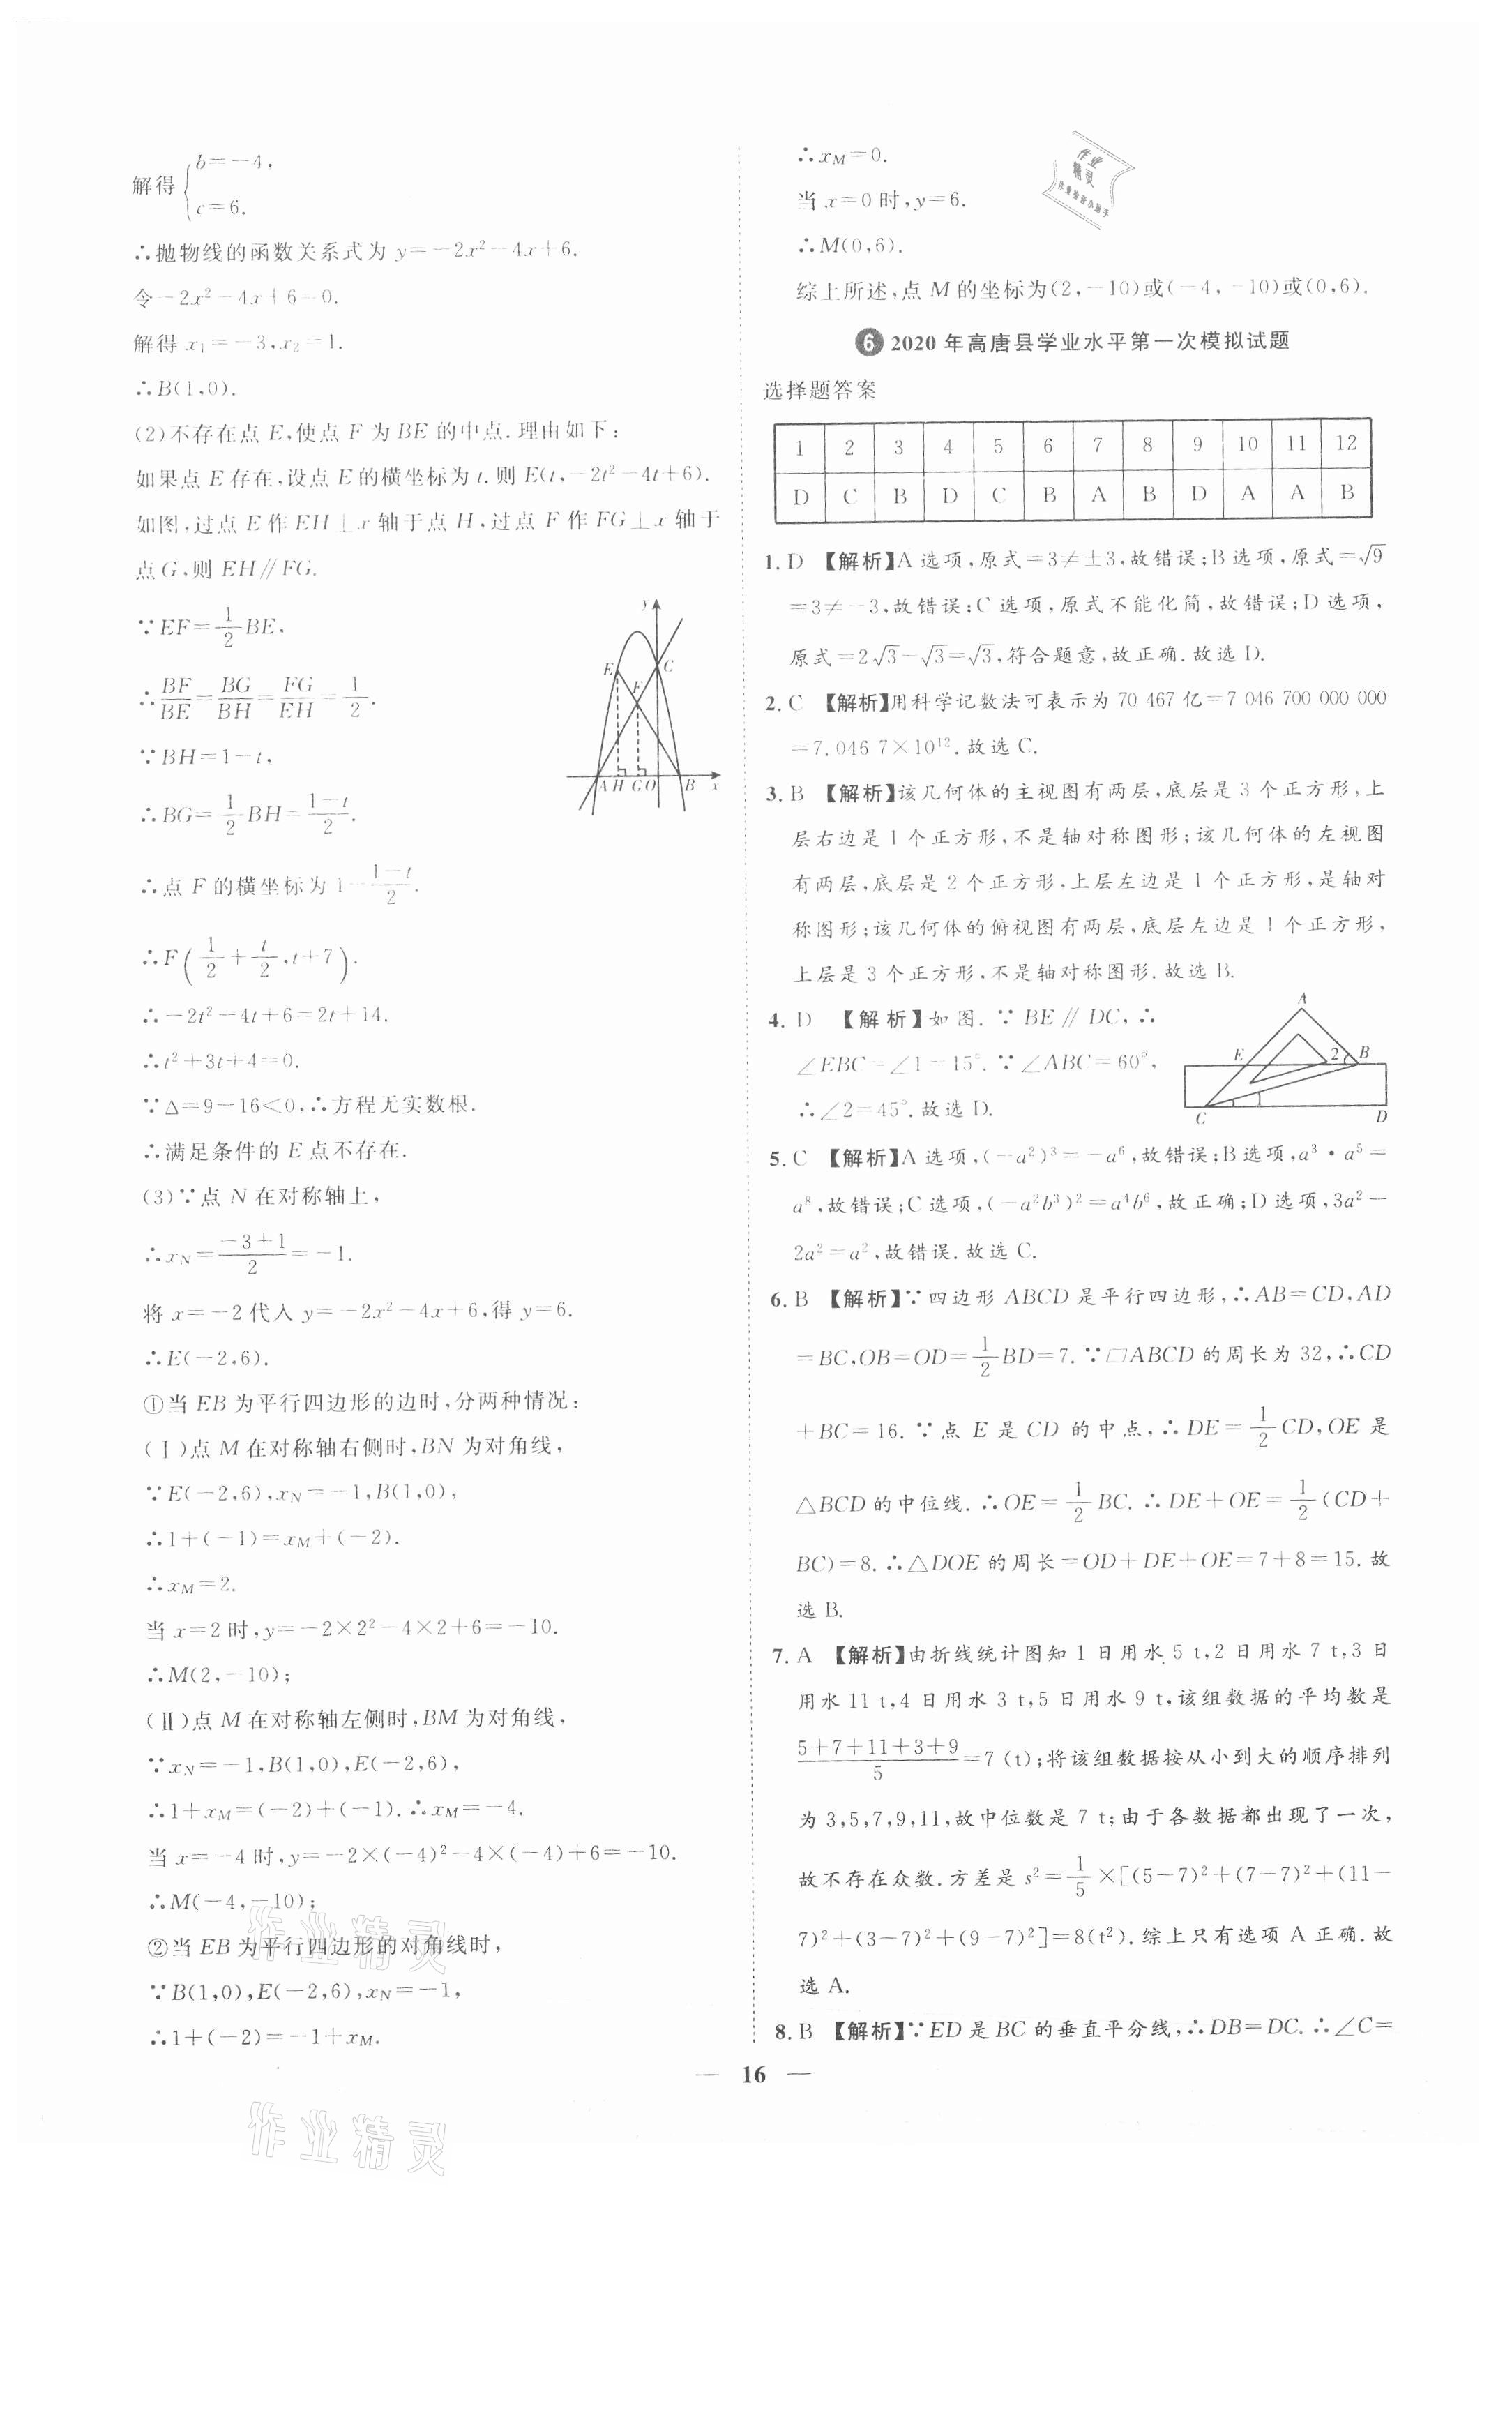 解得{b=-4,
c=6.
∴抛物线的函数关系式为 y=-2x²-4x+6.
令-2x²-4x+6=0.
解得 x₁=-3,x₂=1.
∴B(1,0).
(2)不存在点 E,使点 F 为 BE 的中点.理由如下:
如果点 E 存在,设点 E 的横坐标为 t.则 E(t,-2t²-4t+6).
如图,过点 E 作 EH⊥x 轴于点 H,过点 F 作 FG⊥x 轴于
点 G,则 EH∥FG.
∵EF=1/2 BE,
∴BF/BE=BG/BH=FG/EH=1/2.
∵BH=1-t,
∴BG=1/2 BH=(1-t)/2.
∴点 F 的横坐标为 1-(1-t)/2.
∴F(1/2+t/2,t+7).
∴-2t²-4t+6=2t+14.
∴t²+3t+4=0.
∵Δ=9-16<0,∴方程无实数根.
∴满足条件的 E 点不存在.
y
E
C
F
A H G O B x
(3)∵点 N 在对称轴上,
∴x_N=(-3+1)/2=-1.
将 x=-2代入 y=-2x²-4x+6,得 y=6.
∴E(-2,6).
①当 EB 为平行四边形的边时,分两种情况:
(Ⅰ)点 M 在对称轴右侧时,BN 为对角线,
∵E(-2,6),x_N=-1,B(1,0),
∴1+(-1)=x_M+(-2).
∴x_M=2.
当 x=2 时,y=-2×2²-4×2+6=-10.
∴M(2,-10);
(Ⅱ)点 M 在对称轴左侧时,BM 为对角线,
∵x_N=-1,B(1,0),E(-2,6),
∴1+x_M=(-2)+(-1).∴x_M=-4.
当 x=-4 时,y=-2×(-4)²-4×(-4)+6=-10.
∴M(-4,-10);
②当 EB 为平行四边形的对角线时,
∵B(1,0),E(-2,6),x_N=-1,
∴1+(-2)=-1+x_M.
∴x_M=0.
当 x=0 时,y=6.
∴M(0,6).
综上所述,点 M 的坐标为(2,-10)或(-4,-10)或(0,6).
作业
精灵
❻ 2020 年高唐县学业水平第一次模拟试题
选择题答案
1 2 3 4 5 6 7 8 9 10 11 12
D C B D C B A B D A A B
1. D 【解析】A 选项,原式=3≠±3,故错误;B 选项,原式=√9
=3≠-3,故错误;C 选项,原式不能化简,故错误;D 选项,
原式=2√3-√3=√3,符合题意,故正确.故选 D.
2. C 【解析】用科学记数法可表示为 70 467 亿=7 046 700 000 000
=7.046 7×10¹².故选 C.
3. B 【解析】该几何体的主视图有两层,底层是 3 个正方形,上
层右边是 1 个正方形,不是轴对称图形;该几何体的左视图
有两层,底层是 2 个正方形,上层左边是 1 个正方形,是轴对
称图形;该几何体的俯视图有两层,底层左边是 1 个正方形,
上层是 3 个正方形,不是轴对称图形.故选 B.
4. D 【解析】如图.∵BE∥DC,∴
∠EBC=∠1=15°.∵∠ABC=60°,
∴∠2=45°.故选 D.
A
E 2 B
C D
5. C 【解析】A 选项,(-a²)³=-a⁶,故错误;B 选项,a³·a⁵=
a⁸,故错误;C 选项,(-a²b³)²=a⁴b⁶,故正确;D 选项,3a²-
2a²=a²,故错误.故选 C.
6. B 【解析】∵四边形 ABCD 是平行四边形,∴AB=CD,AD
=BC,OB=OD=1/2 BD=7.∵□ABCD 的周长为 32,∴CD
+BC=16.∵点 E 是 CD 的中点,∴DE=1/2 CD,OE 是
△BCD 的中位线.∴OE=1/2 BC.∴DE+OE=1/2(CD+
BC)=8.∴△DOE 的周长=OD+DE+OE=7+8=15.故
选 B.
7. A 【解析】由折线统计图知 1 日用水 5 t,2 日用水 7 t,3 日
用水 11 t,4 日用水 3 t,5 日用水 9 t,该组数据的平均数是
(5+7+11+3+9)/5=7 (t);将该组数据按从小到大的顺序排列
为 3,5,7,9,11,故中位数是 7 t;由于各数据都出现了一次,
故不存在众数.方差是 s²=1/5×[(5-7)²+(7-7)²+(11-
7)²+(3-7)²+(9-7)²]=8(t²).综上只有选项 A 正确.故
选 A.
8. B 【解析】∵ED 是 BC 的垂直平分线,∴DB=DC.∴∠C=
— 16 —
作业精灵
作业精灵